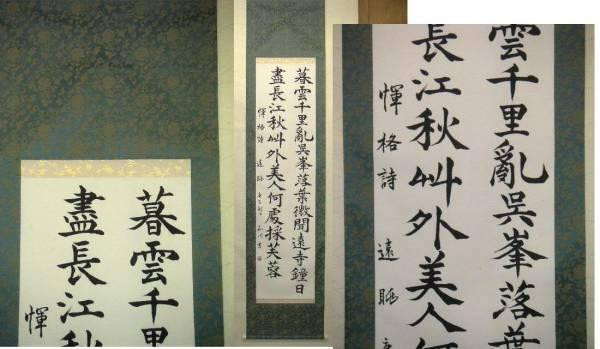 暮雲千里
盡長江秋
惲
暮雲千里亂呉峯落葉微聞遠寺鐘日
盡長江秋艸外美人何處採芙蓉
惲格詩 遠眺
雲千里亂呉峯落葉
長江秋艸外美人何
惲格詩 遠眺